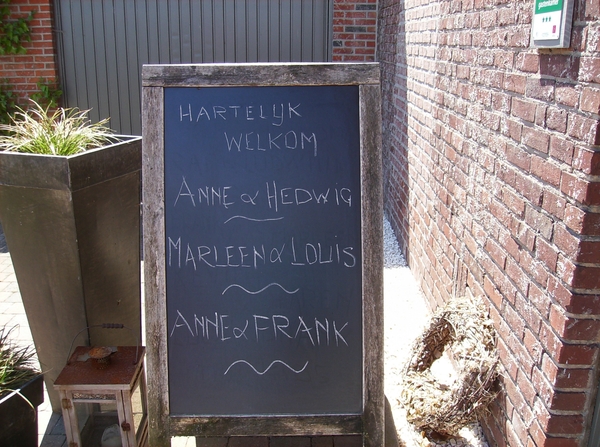 HARTELIJK
WELKOM
ANNE & HEDWIG
MARLEEN & LOUIS
ANNE & FRANK